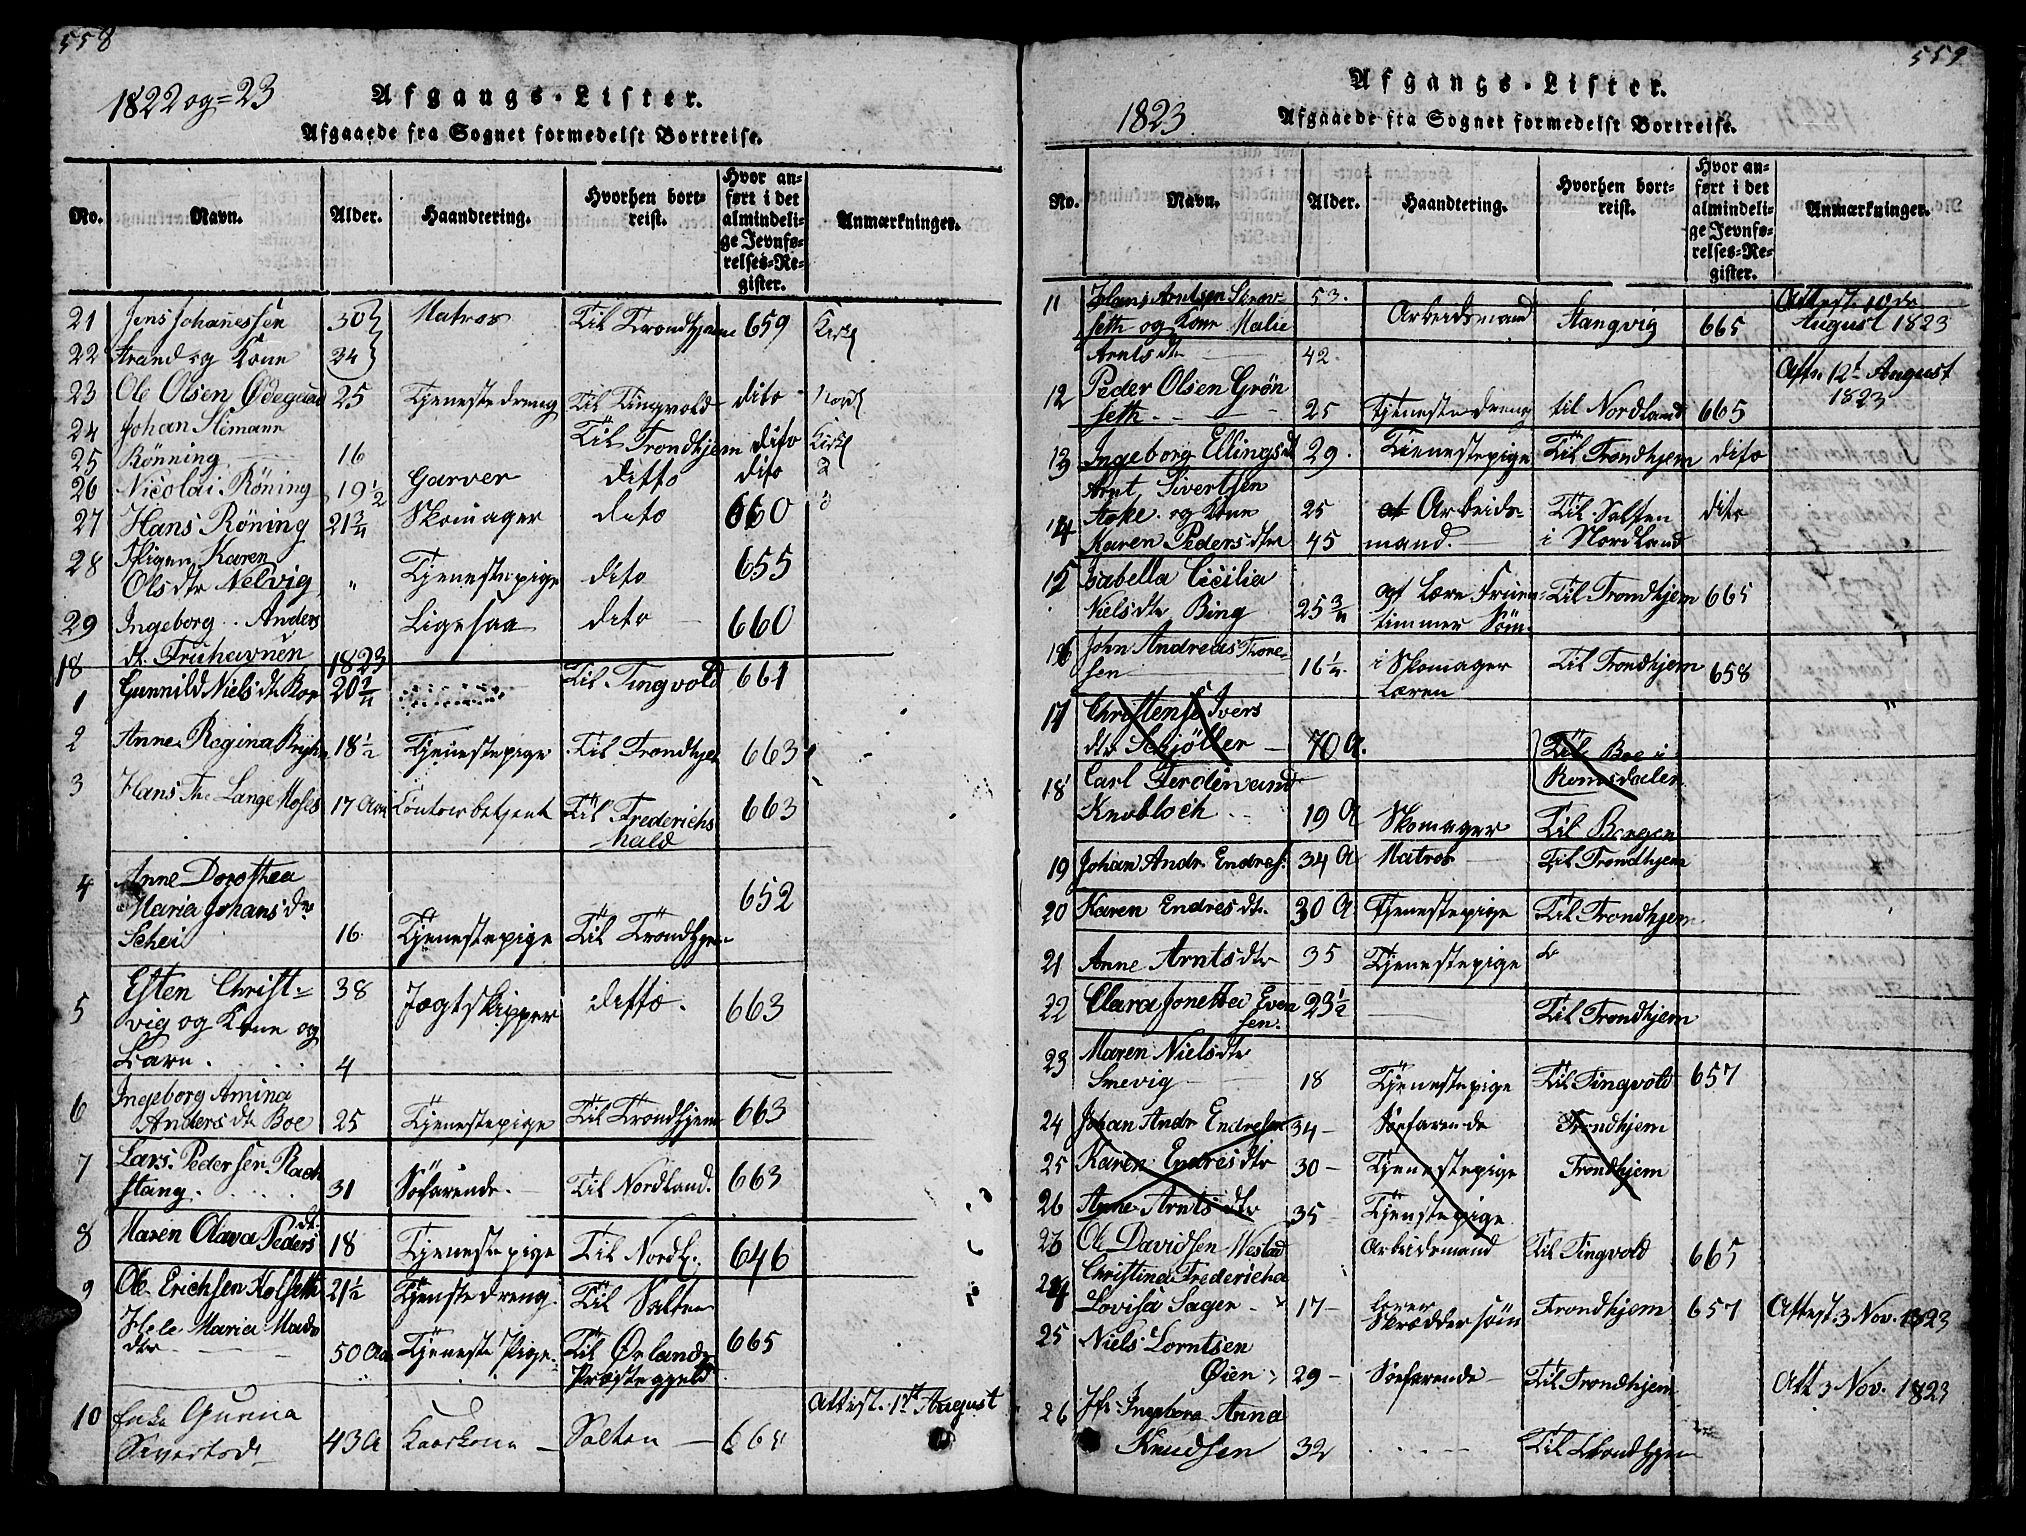 558
1822 og = 23
Afgangs-Lister.
Afgaaede fra Sognet formedelst Bortreise.
No. Navn. Alder. Haandtering. Hvorhen bortreist. Hvor anført i det almindelige Jevnførelses-Register. Anmærkninger.
21 Jens Johanessen 30 Matros Til Trondhjem 659
22 Strand og Kone 34
23 Ole Olsen Ødegaard 25 Tjenestedreng Til Tingvold dito
24 Johan
25 Rönning 16 Til Trondhjem dito
26 Nicolai Röning 19 1/2 Garver ditto dito
27 Hans Röning 21 3/4 Skomager dito 660
28 Pigen Karen
Olsdtr Nelvig " Tjenestepige dito 655
29 Ingeborg Anders
dt. Fruhavnen Ligesaa dito 660
18 1823
1 Gunnild Nielsdtr Boe 20 3/4 Til Tingvold 661
2 Anne Regina 18 1/2 Tjenestepige Til Trondhjem 663
3 Hans Th. Lange Moses 17 Aar Contoirbetjent Til Frederichs
hald 663
4 Anne Dorothea
Maria Johansdtr
Schei 16 Tjenestepige Til Trondhjem 652
5 Esten Christ-
vig og Kone og 38 Jagtskipper ditto. 663
Barn . . . . 4
6 Ingeborg Amina
Andersdtr Boe 25 Tjenestepige Til Trondhjem 663
7 Lars Pedersen
stang. 31 Söfarende. Til Nordland. 663
8 Maren Olava Pedersdt: 18 Tjenestepige Til Nordl. 646
9 Ole Erichsen Holseth 21 1/2 Tjenstedreng Til Salten
Maria Mads
dtr 50 Aar Tjeneste Pige Til Ørlands
Præstegjeld 665
Attest. 1st August
10 Enke Gunna
Sivertsd 43 A Salten
559
1823.
Afgangs-Lister.
Afgaaede fra Sognet formedelst Bortreise.
No. Navn. Alder. Haandtering. Hvorhen bortreist. Hvor anført i det almindelige Jevnførelses-Register. Anmærkninger.
11 Hans Arntsen 53. Attest. 10de
seth og Kone Malie Arbeidsmand Stangvig 665 August 1823
Arntsdtr 42.
12 Peder Olsen Grön Att. 12t August
seth 25 Tjenestedreng til Nordland 665 1823
13 Ingeborg Ellingsdt 29. Tienestepige Til Trondhjem dito
14 Arnt Sivertsen
og Kone 25 Arbeids- Til Salten dito
Karen Pedersdtr 45 mand. i Nordland
15 Isabella Cicilia
Nielsdtr Bing 25 3/4 at lære Fruen- Til Trondhjem 665
timmer Söm.
16 John Andreas Thore-
sen 16 1/4 i Skomager Til Trondhjem 658
Læren
17 Christense Ivers
dtr Schjöller 70 A. Til Boe i
Romsdalen
18 Carl Ferdinand
Knobloch 19 A Skomager Til Bergen
19 Johan Andr. Endres: 34 A Matros Til Trondhjem
20 Karen Endresdtr. 30 A Tjenestepige Til Trondhjem
21 Anne Arntsdtr 35 Tjenestepige
22 Clara Jonetta Even
sen. 23 1/2 Til Trondhjem
23 Maren Nielsdtr
Smevig 18 Tjenestepige Til Tingvold 657
24 Johan Andr Endresen 34 Söefarende Trondhjem
25 Karen Endresdtr 30 Tjenestepige Trondhjem
26 Anne Arntsdtr 35 Tjenstepige
Ole Davidsen Westad Arbeidsmand Til Tingvold 665
24 Christina Fredericha
Lovisa Sager 17 lærer
Skræddersöm Trondhjem 657 Attest. 3 Nov. 1823
25 Niels Lorntsen
Øien 29 Söefarende Til Trondhjem Att 3 Nov. 1823
26 Jfr. Ingeborg Anna
Knudsen 32 Til Trondhjem